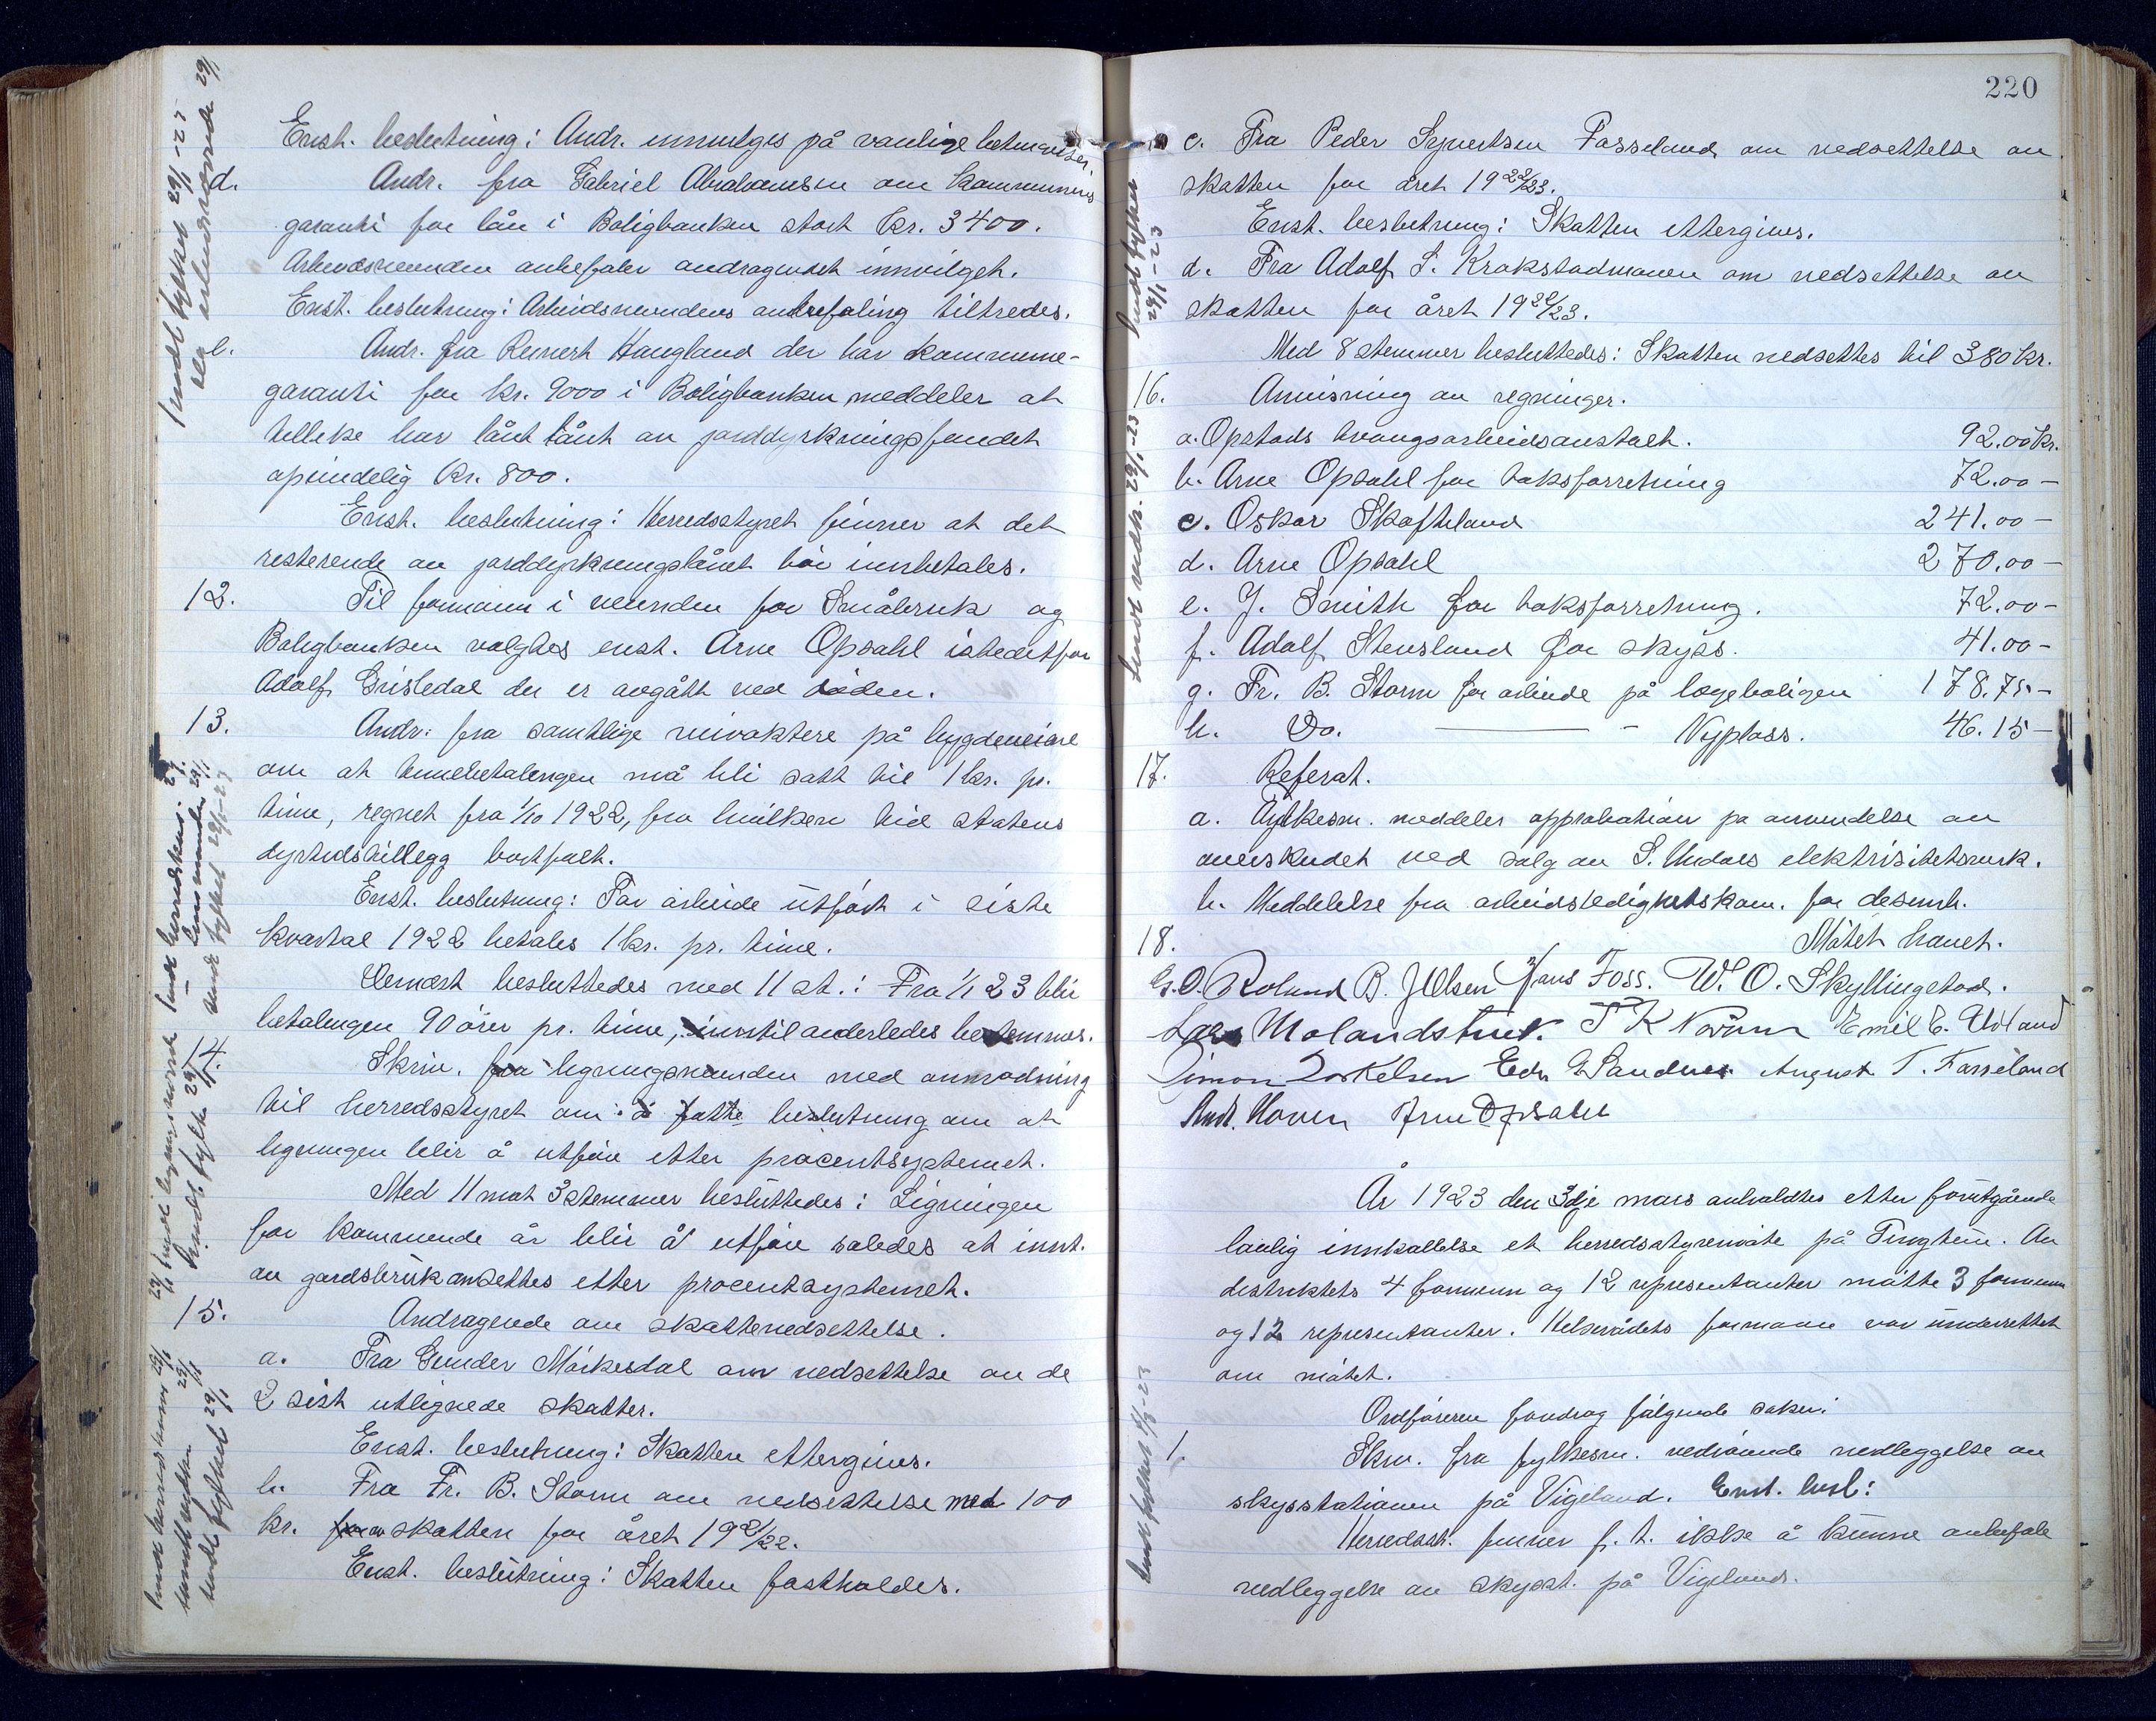 Enst. beslutning: Andr. innvilges på vanlige betingelser.
d. Andr. fra Gabriel Abrahamsen om kommunens
garanti for lån i Boligbanken stort kr. 3400.
Arbeidsnevnden anbefaler andragendet innvilget.
Enst. beslutning: Arbeidsnevndens anbefaling tiltredes.
e. Andr. fra Reinert Haugland der har kommune-
garanti for kr. 9000 i Boligbanken meddeler at
tillike har lånt lånt av jorddyrkningsfondet
oprindelig kr. 800.
Enst. beslutning: Herredsstyret finner at det
resterende av jorddyrkningslånet bør innbetales.
12. Til formann i nevnden for Småbruk og
Boligbanken valgtes enst. Arne Opsahl istedetfor
Adolf Grisledal der er avgått ved døden.
13. Andr. fra samtlige veivoktere på bygdeveiene
om at timebetalingen må bli satt til 1 kr. pr.
time, regnet fra 1/10 1922, fra hvilken tid statens
dyrtidstillegg bortfalt.
Enst. beslutning: For arbeide utført i siste
kvartal 1922 betales 1 kr. pr. time.
Dernæst besluttedes med 11 st.: Fra 1/1 23 blir
betalingen 90 ører pr. time, inntil anderledes bestemmes.
14. Skriv. fra ligningsnevnden med anmodning
til herredsstyret om å fatte beslutning om at
ligningen blir å utføre etter procentsystemet.
Med 11 mot 3 stemmer besluttedes: Ligningen
for kommende år blir å utføre således at innt.
av gardsbruk ansettes etter procentsystemet.
15. Andragende om skattenedsettelse.
a. Fra Gunder Mörkesdal om nedsettelse av de
2 sist utlignede skatter.
Enst. beslutning: Skatten ettergives.
b. Fra Fr. B. Storm om nedsettelse med 100
kr. skatten for året 1921/22.
Enst. beslutning: Skatten fastholdes.
Sendt fylket 29/1-23
Sendt fylket 29/1-23
220
c. Fra Peder Syvertsen Fasseland om nedsettelse av
skatten for året 1922/23.
Enst. beslutning: Skatten ettergives.
d. Fra Adolf S. Krokstadmoen om nedsettelse av
skatten for året 1922/23.
Med 8 stemmer besluttedes: Skatten nedsettes til 380 kr.
16. Anvisning av regninger.
a. Opstads tvangsarbeidsanstalt. 92.00 kr.
b. Arne Opsahl for taksforretning 72.00 -
c. Oskar Skofteland 241.00 -
d. Arne Opsahl 270.00 -
e. J. Smith for taksforretning. 72.00 -
f. Adolf Stensland for skyss. 41.00 -
g. Fr. B. Storm for arbeide på lægeboligen 178.75 -
h. Do. — - Nyplass. 46.15 -
17. Referat.
a. Fylkesm. meddeler approbation på anvendelse av
overskudet ved salg av S. Undals elektrisitetsverk.
b. Meddelelse fra arbeidsledighetskom. for desemb.
18. Møtet hevet.
G. O. Roland B. J. Olsen Hans Foss. W. O. Skyllingstad.
Lars Molandstveit. T K Emil E. Udland
Simon Torkelsen Edv. G Sandnes August T. Fasseland
Andr. Hoven Arne Opsahl
År 1923 den 3dje mars avholdtes etter forutgående
lovlig innkallelse et herredsstyremøte på Tingheim. Av
distriktets 4 formenn og 12 representanter møtte 3 formenn
og 12 representanter. Helserådets formann var underrettet
om møtet.
Ordføreren foredrog følgende saker:
1. Skriv. fra fylkesm. vedrørende nedleggelse av
skysstationen på Vigeland. Enst. besl:
Herredsst. finner f. t. ikke å kunne anbefale
nedleggelse av skysst. på Vigeland.
Sendt fylket 29/1-23